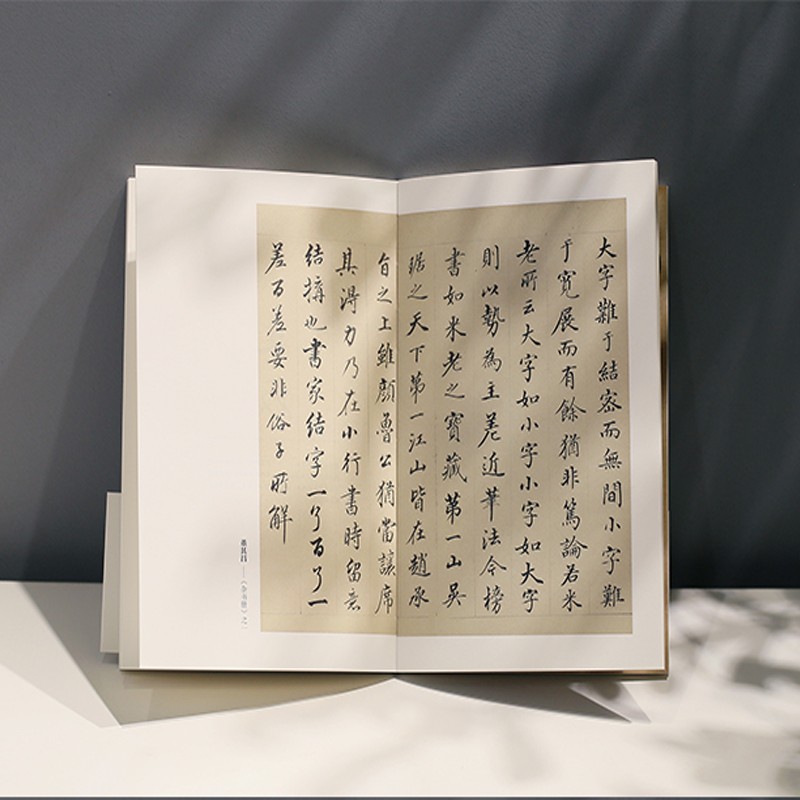 大字難于結密而無間小字難
于寬展而有餘猶非篤論若米
老所云大字如小字小字如大字
則以勢為主差近筆法今榜
書如米老之寶藏第一山吳
琚之天下第一江山皆在趙承
旨之上雖顏魯公猶當讓席
其得力乃在小行書時留意
結搆也書家結字一了百了一
差百差要非俗子所解
董其昌——《杂书册》之一